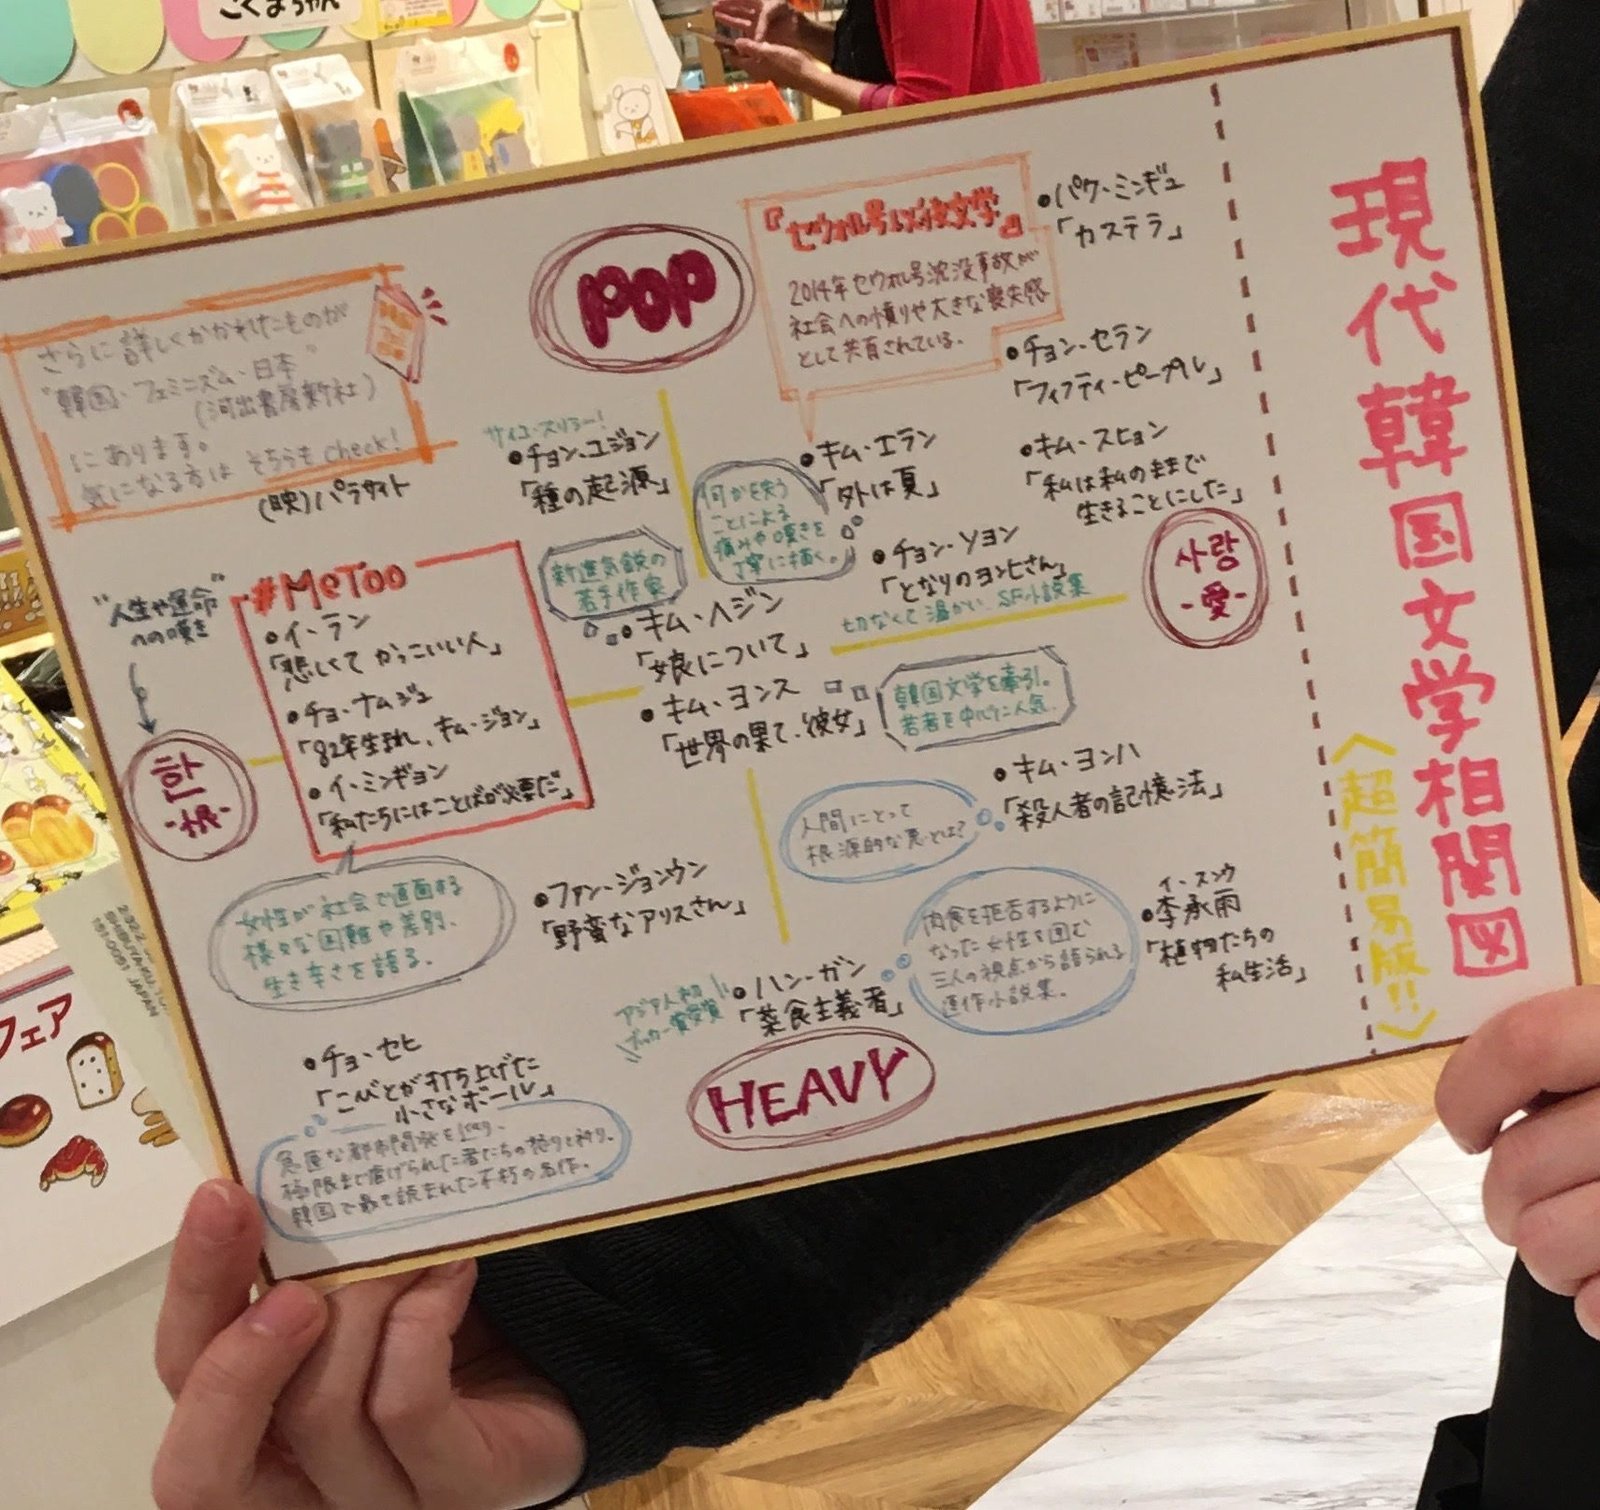 現代韓国文学相関図
〈超簡易版!!〉
POP
HEAVY
사랑
-愛-
한
-恨-
"人生や運命"
への嘆き
さらに詳しくかかれたものが
"韓国・フェミニズム・日本"
(河出書房新社)
にあります。
気になる方は そちらもcheck!
(映)パラサイト
『セウォル号以後文学』
2014年セウォル号沈没事故が
社会への憤りや大きな喪失感
として共有されている。
●パク・ミンギュ
「カステラ」
●チョン・セラン
「フィフティ・ピープル」
●キム・スヒョン
「私は私のままで
生きることにした」
サイコ・スリラー!
●チョン・ユジョン
「種の起源」
●キム・エラン
「外は夏」
何かを失う
ことによる
痛みや嘆きを
丁寧に描く。
●チョン・ソヨン
「となりのヨンヒさん」
切なくて温かい、SF小説集
新進気鋭の
若手作家
●キム・ヘジン
「娘について」
●キム・ヨンス
「世界の果て、彼女」
韓国文学を牽引。
若者を中心に人気。
#MeToo
●イ・ラン
「悲しくてかっこいい人」
●チョ・ナムジュ
「82年生まれ、キム・ジヨン」
●イ・ミンギョン
「私たちにはことばが必要だ」
女性が社会で直面する
様々な困難や差別、
生き辛さを語る。
●キム・ヨンハ
「殺人者の記憶法」
人間にとって
根源的な悪とは?
●ファン・ジョンウン
「野蛮なアリスさん」
イ・スンウ
●李承雨
「植物たちの
私生活」
アジア人初
ブッカー賞受賞
●ハン・ガン
「菜食主義者」
肉食を拒否するように
なった女性を囲む
三人の視点から語られる
連作小説集。
●チョ・セヒ
「こびとが打ち上げた
小さなボール」
急速な都市開発を巡り、
極限まで虐げられた者たちの怒りと祈り。
韓国で最も読まれた不朽の名作。
こぐまちゃん
フェア
SHIBUYA-KU, TO
151-0051 JAPAN